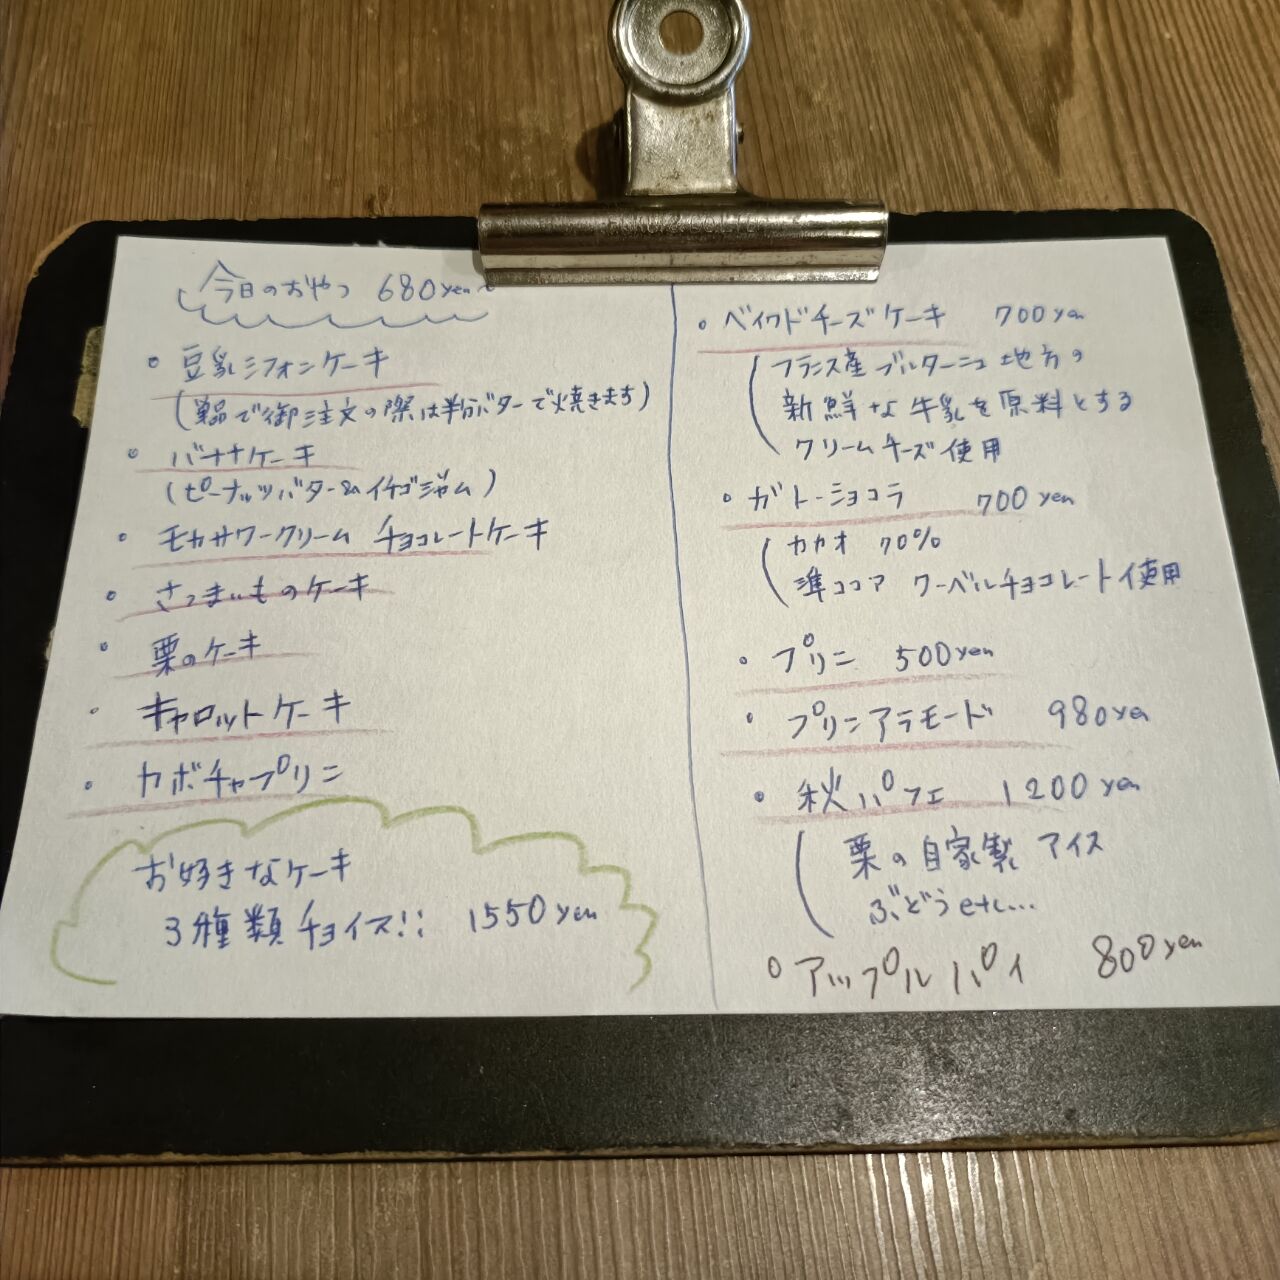 今日のおやつ 680yen
・豆乳シフォンケーキ
(単品で御注文の際は半分バターで焼きます)
・バナナケーキ
(ピーナッツバター&イチゴジャム)
・モカサワークリーム チョコレートケーキ
・さつまいものケーキ
・栗のケーキ
・キャロットケーキ
・カボチャプリン
お好きなケーキ
3種類チョイス!! 1550yen
・ベイクドチーズケーキ 700yen
フランス産ブルターニュ地方の
新鮮な牛乳を原料とする
クリームチーズ使用
・ガトーショコラ 700yen
カカオ 70%
準ココア クーベルチョコレート使用
・プリン 500yen
・プリンアラモード 980yen
・秋パフェ 1200yen
栗の自家製アイス
ぶどうetc...
・アップルパイ 800yen